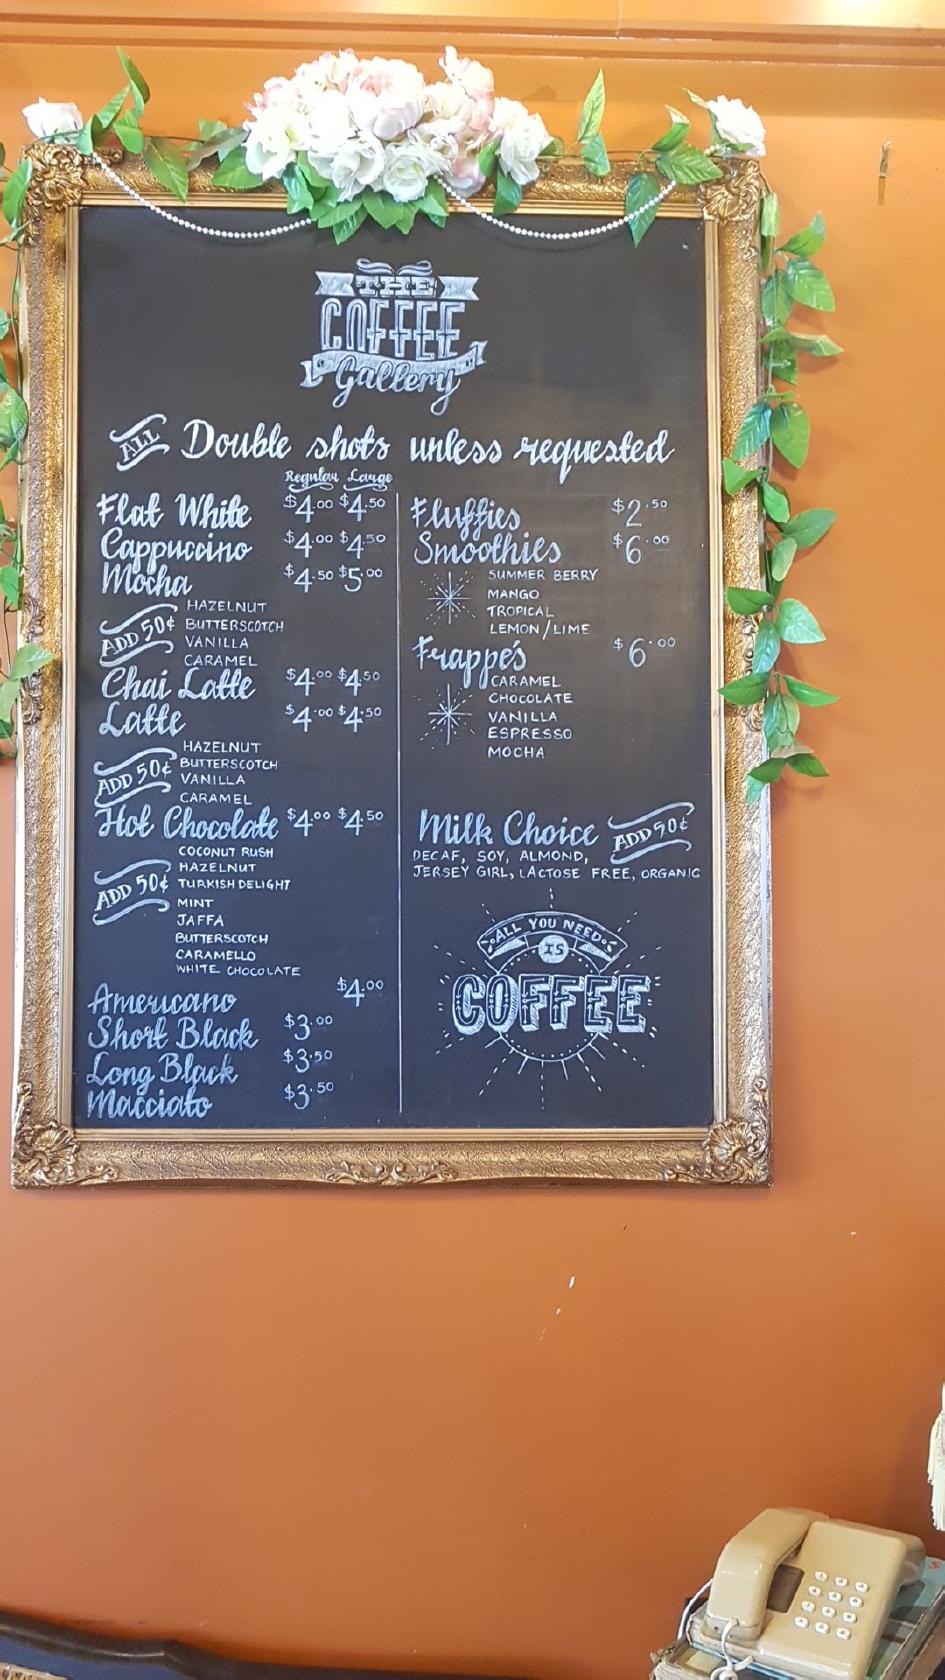 THE
COFFEE
Gallery
ALL Double shots unless requested
Regular Large
Flat White $4.00 $4.50
Cappuccino $4.00 $4.50
Mocha $4.50 $5.00
ADD 50¢
HAZELNUT
BUTTERSCOTCH
VANILLA
CARAMEL
Chai Latte $4.00 $4.50
Latte $4.00 $4.50
ADD 50¢
HAZELNUT
BUTTERSCOTCH
VANILLA
CARAMEL
Hot Chocolate $4.00 $4.50
ADD 50¢
COCONUT RUSH
HAZELNUT
TURKISH DELIGHT
MINT
JAFFA
BUTTERSCOTCH
CARAMELLO
WHITE CHOCOLATE
Americano $4.00
Short Black $3.00
Long Black $3.50
Macciato $3.50
Fluffies $2.50
Smoothies $6.00
SUMMER BERRY
MANGO
TROPICAL
LEMON/LIME
Frappés $6.00
CARAMEL
CHOCOLATE
VANILLA
ESPRESSO
MOCHA
Milk Choice ADD 50¢
DECAF, SOY, ALMOND,
JERSEY GIRL, LACTOSE FREE, ORGANIC
ALL YOU NEED
IS
COFFEE